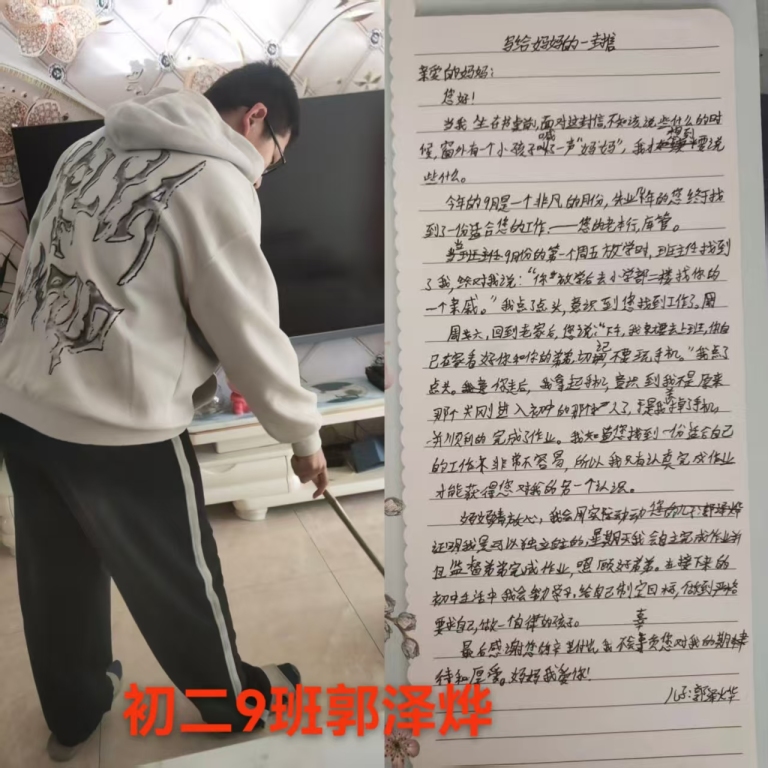 初二9班郭泽烨
写给妈妈的一封信
亲爱的妈妈:
您好!
当我坐在书桌前,面对这封信不知该说些什么的时
候,窗外有一个小孩喊了一声“妈妈”,我才想到要说
些什么。
今年的9月是一个非凡的月份,失业半年的您终于找
到了一份适合您的工作——您的老本行,库管。
9月份的第一个周五放学时,班主任找到
了我,然对我说:“你放学后去小学部二楼找你的
一个亲戚。”我点了点头,意识到您找到工作了。周
周六,回到老家后,您说:“儿子,我要去上班,你自
己在家看好你和你的弟弟,切记,不要玩手机。”我点了
点头。您走后,我拿起手机,意识到我不是原来
那个刚刚进入初中的那个人了,于是我弃掉了手机。
并顺利的完成了作业。我知道您找到一份适合自己
的工作非常不容易,所以我只有认真完成作业
才能获得您对我的另一个认识。
妈妈请放心,我会用实际行动
证明我是可以独立的,星期天我会自主完成作业并
且监督弟弟完成作业,照顾好弟弟。在接下来的
初中生活中我会努力学习,给自己制定目标,做到严格
要求自己,做一个自律的孩子。
最后感谢您的辛苦付出,我不会辜负您对我的期
待和厚爱。妈妈我爱你!
儿子:郭泽烨